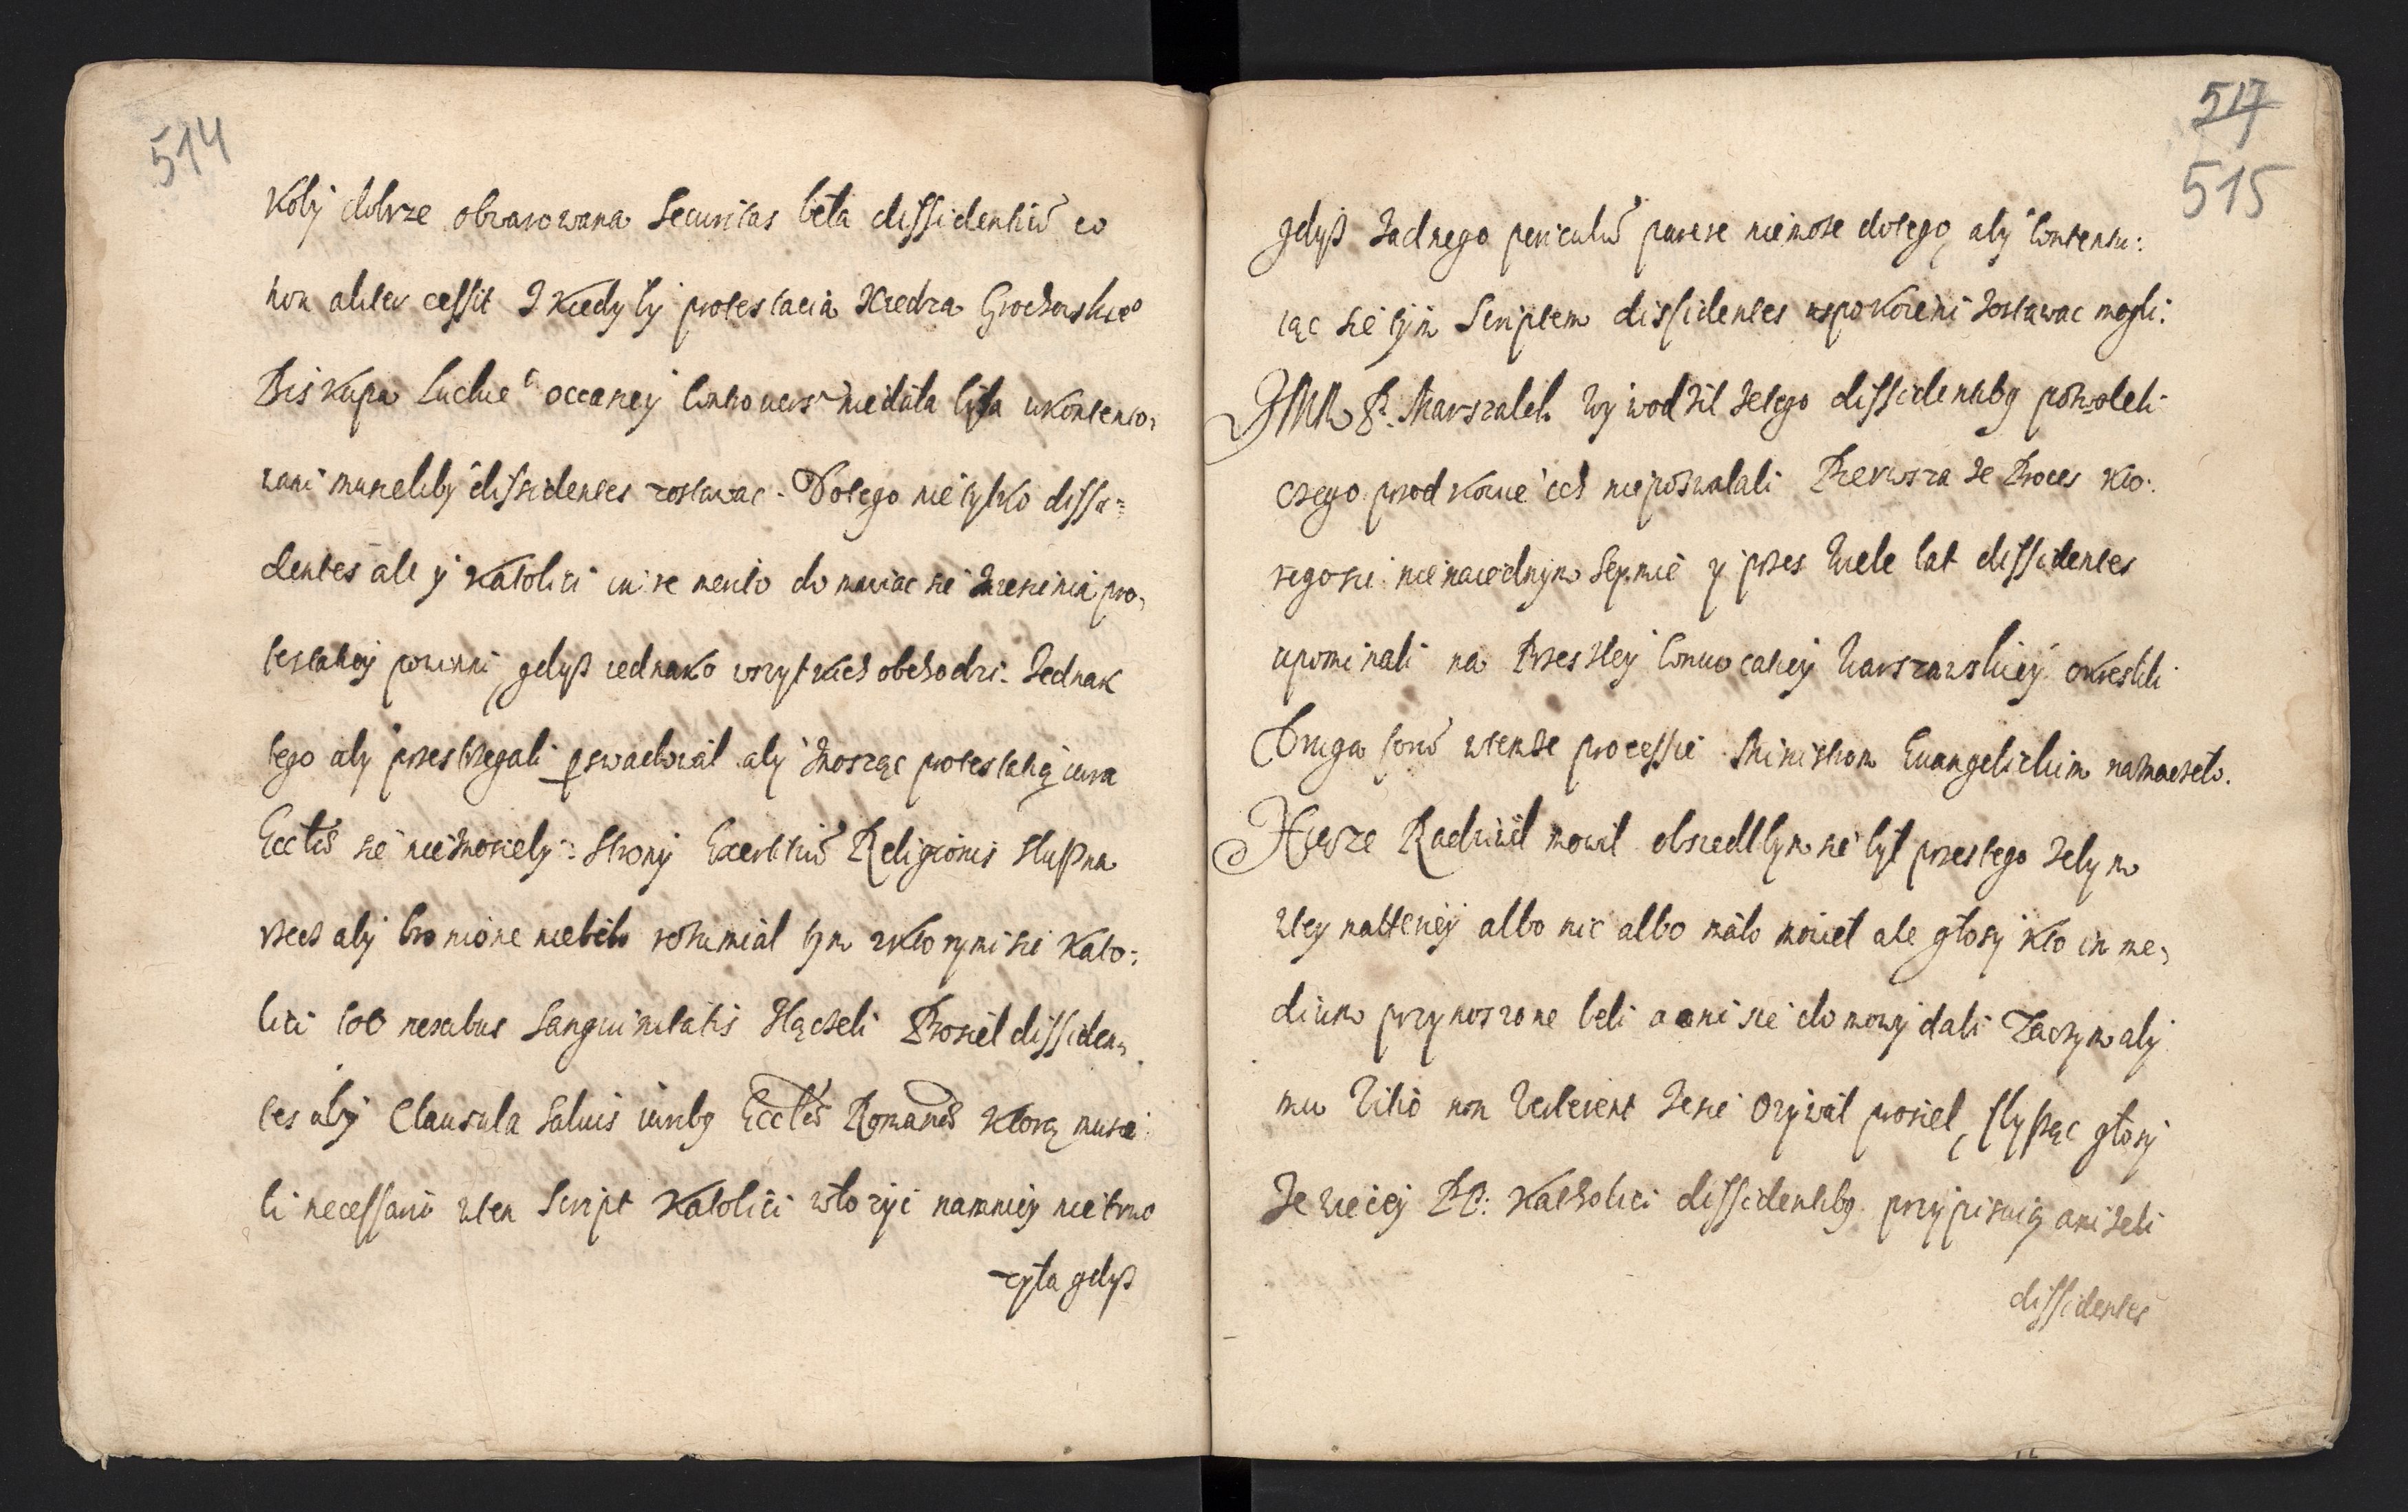 514
Koby dobrze obwarowana Securitas beła dissidentiũ co
non aliter cessit I kiedy by protestacia Xiedza Grochowskie°
Biskupa Luckie° occasiey controuers niedała była ukontento,
wani musieliby dissidentes zostawac. Dotego nie tylko dissi=
dentes ale y Katolici in re merito domawiac się zniesienia pro,
testatiey powinni gdyß iednako wszytkich obchodzi. Jednak
tego aby przestrzegali pswadował aby znosząc protestatią iura
Eccliæ się nieznosiely: Strony Exercitiũ Religionis słußna
rzecz aby bronione niebeło rozumiał tym zktorymi sie Kato:
lici fœ nexibus Sanguinitatis złącżeli Prosiel dissiden,
tes aby Clausula Saluis iuribq Eccliæ Romanæ ktorą musie
li necessario wten Script Katolici włozyc namniey nie trwo
zyła gdyß
517
515
gdyß żadnego periculũ parere niemoze dotego aby contentu:
iąc sie tym Scriptem dissidentes uspokoieni zostawac mogli:
JMP P. Marszalek wywodził ze tego dissidentibq pozwoleli
czego przodkowie ich niepozwalali Pierwsza ze Proces kto:
rego sie nie naiednym Seymie y przes wiele lat dissidentes
upominali na Przeszłey Conuocatiey Warszawskiey okreslili
Druga forũ wtemze processie Ministrom Euangelickim naznaczeło.
Xiąze Radziwił mowił obszedłbym się był przestego zebym
wtey matteriey albo nic albo mało mowieł ale głosy kto in me,
dium przynoszone beli a oni sie do mowy dali Zaczym aby
mu Vitio non verterent ze się ozywał prosiel, słyßąc głosy
ze więcey PP: Katholici dissidentibq. przypisuią anizeli
dissidentes